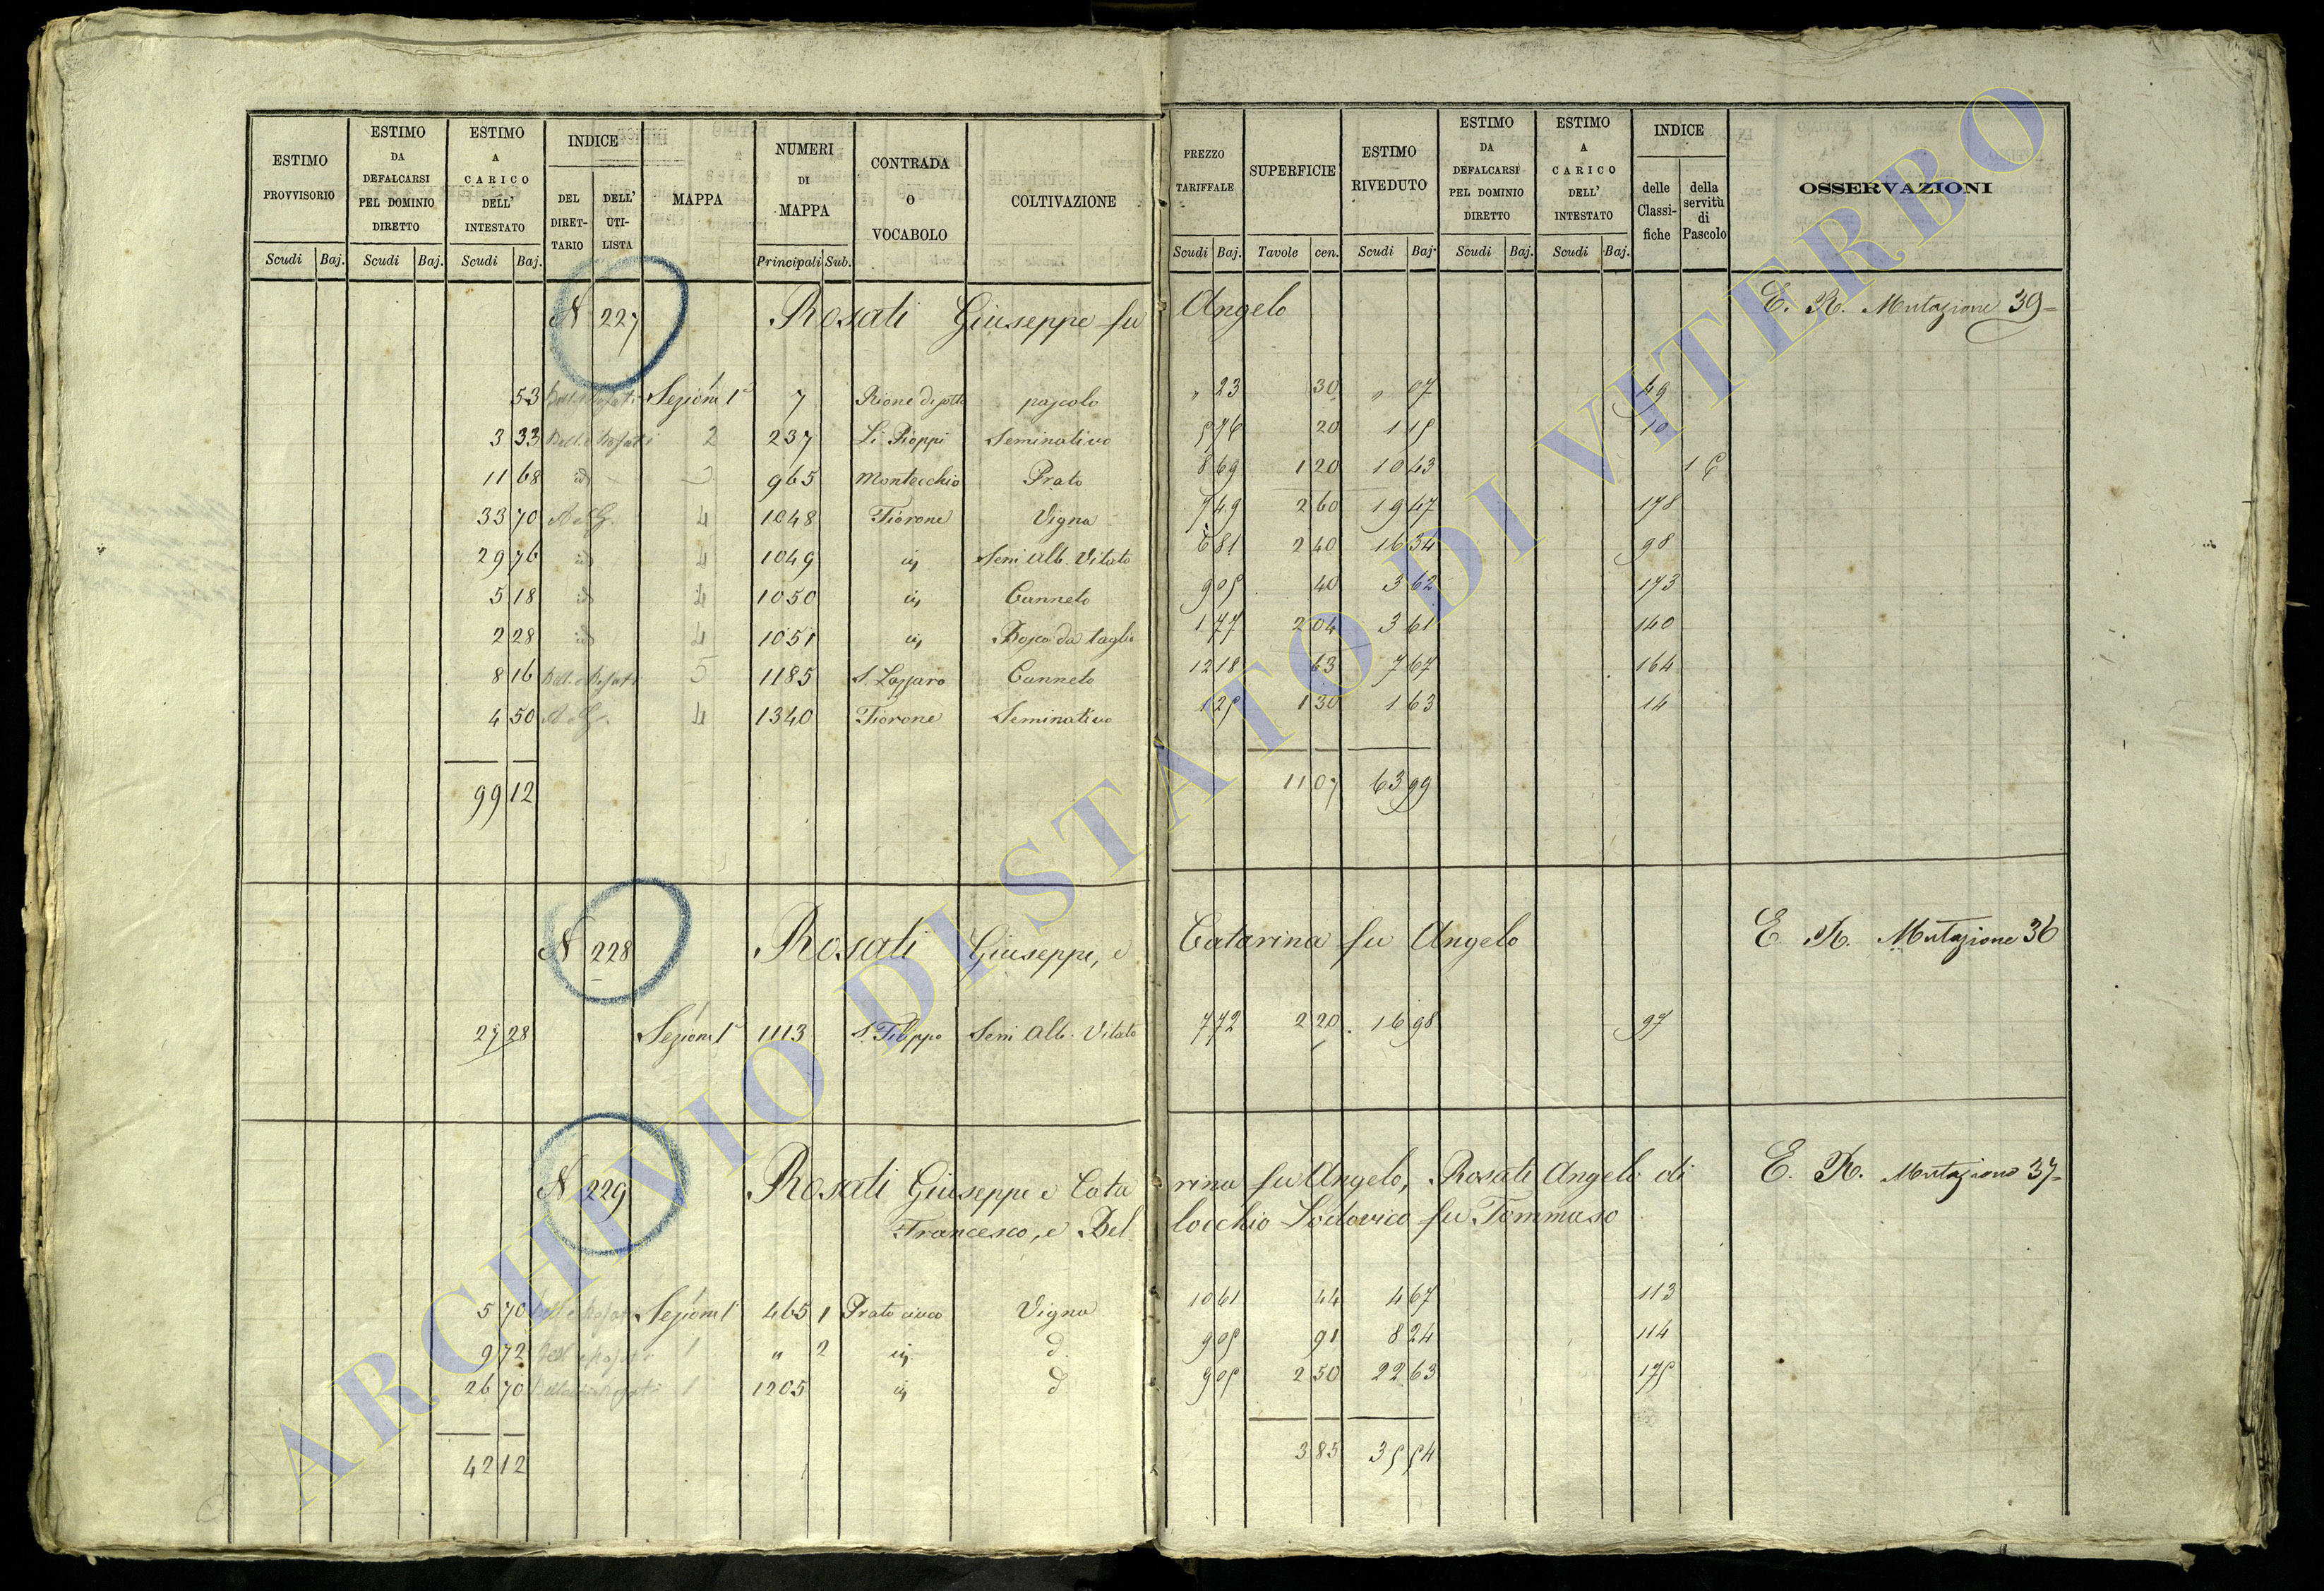 ESTIMO PROVVISORIO | ESTIMO DA DEFALCARSI PEL DOMINIO DIRETTO | ESTIMO A CARICO DELL' INTESTATO | INDICE | MAPPA | NUMERI DI MAPPA | CONTRADA O VOCABOLO | COLTIVAZIONE | PREZZO TARIFFALE | SUPERFICIE | ESTIMO RIVEDUTO | ESTIMO DA DEFALCARSI PEL DOMINIO DIRETTO | ESTIMO A CARICO DELL' INTESTATO | INDICE | OSSERVAZIONI
DEL DIRETTARIO | DELL' UTILISTA | delle Classifiche | della servitù di Pascolo
Scudi Baj. | Scudi Baj. | Scudi Baj. | Principali Sub. | Scudi Baj. | Tavole cen. | Scudi Baj. | Scudi Baj. | Scudi Baj.
N 227 Rosati Giuseppe fu Angelo E. R. Mutazione 39
53 Sezione 1ª 7 Rione di sotto pascolo " 23 30 " 07 49
3 33 2 237 Li Pioppi Seminativo 5 76 20 1 15 10
11 68 id 965 Montecchio Prato 8 69 1 20 10 43 1
33 70 4 1048 Fiorone Vigna 7 49 2 60 19 47 178
29 76 id 4 1049 id Semi Alb. Vitato 6 81 2 40 16 34 98
5 18 id 4 1050 id Canneto 9 05 40 3 62 173
2 28 id 4 1051 id Bosco da taglio 1 77 2 04 3 61 140
8 16 5 1185 S. Lazzaro Canneto 12 18 63 7 67 164
4 50 4 1340 Fiorone Seminativo 1 25 1 30 1 63 14
99 12 11 07 63 99
N 228 Rosati Giuseppe, e Catarina fu Angelo E. R. Mutazione 36
27 28 Sezione 1ª 1113 S. Filippo Semi Alb. Vitato 7 72 2 20 16 98 97
N 229 Rosati Giuseppe e Catarina fu Angelo, Rosati Angelo di E. R. Mutazione 37
Francesco, e Bellocchio Lodovico fu Tommaso
5 70 Sezione 1ª 465 1 Prato Vigna 10 61 44 4 67 113
9 72 1 " 2 id d. 9 05 91 8 24 114
26 70 1 1205 id d. 9 05 2 50 22 63 175
42 12 3 85 35 54
ARCHIVIO DI STATO DI VITERBO